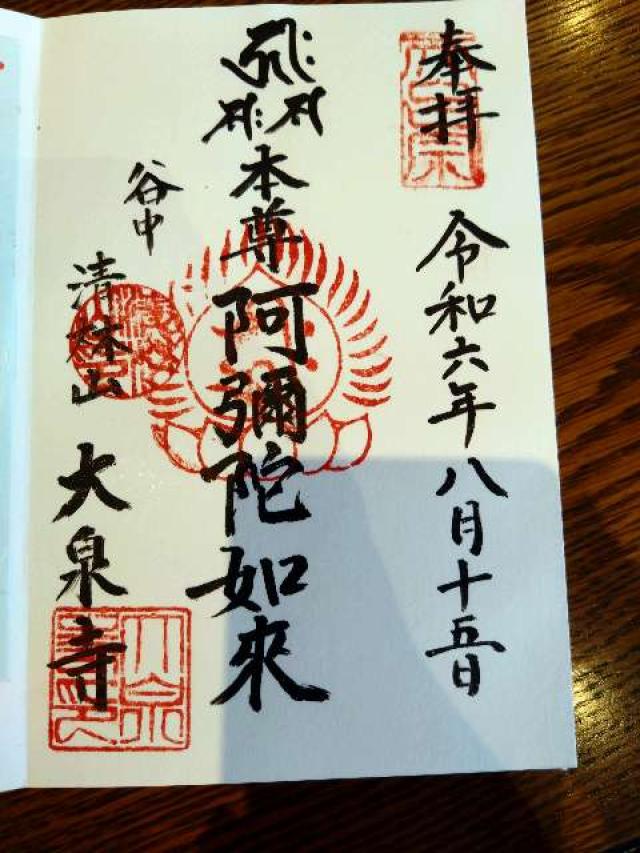 奉拝
令和六年八月十五日
本尊阿彌陀如來
谷中
清林山
大泉寺